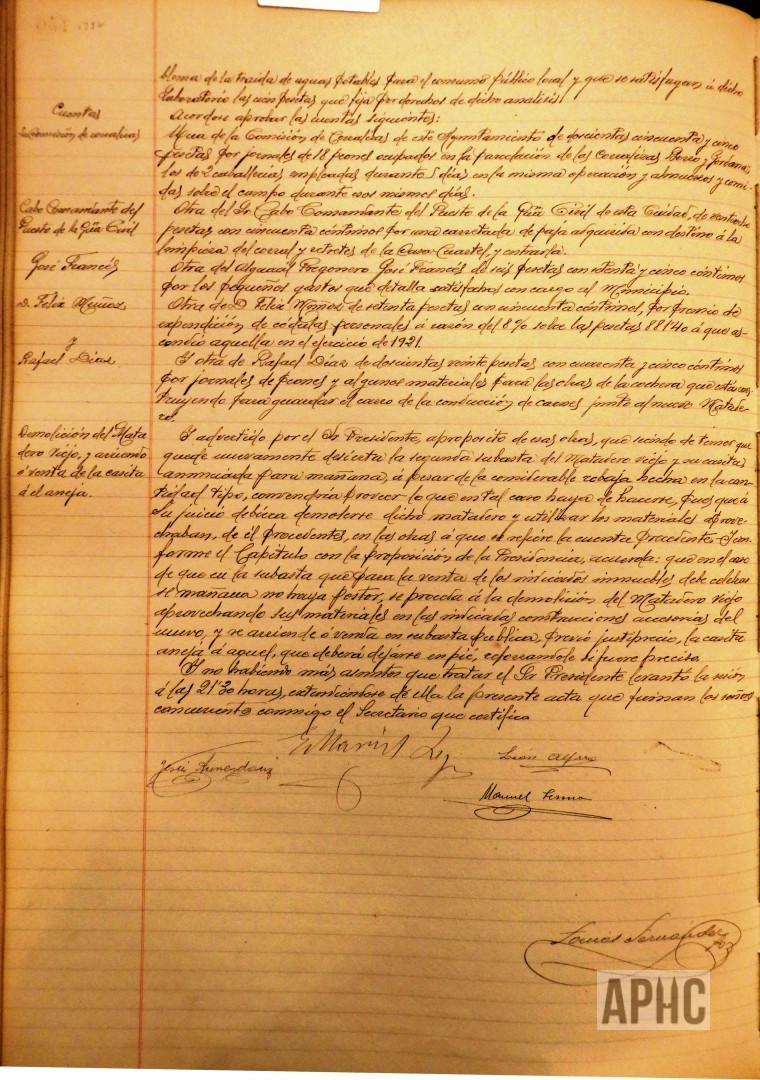 blema de la traida de aguas potables para el consumo público local y que se satisfagan á dicho
Laboratorio las cien pesetas que fija por derechos de dicho analisis.
Cuentas
Acordose aprobar las cuentas siguientes:
Comisión de corralizas
Una de la Comisión de Corralizas de este Ayuntamiento de doscientas cincuenta y cinco
pesetas por jornales de 18 peones ocupados en la de las corralizas y
los de 2 caballerias empleadas durante 5 dias en la misma operación y almuerzos y comi-
das sobre el campo durante esos mismos dias.
Cabo Comandante del
Puesto de la Gũa Civil
Otra del Sr. Cabo Comandante del Puesto de la Gũa Civil de esta Ciudad, de
pesetas con cincuenta céntimos por una carretada de paja adquirida con destino á la
limpieza del corral y retretes de la Casa Cuartel, y entrarla.
José Francés
Otra del Alguacil Pregonero José Francés de seis pesetas con setenta y cinco céntimos
por los pequeños gastos que detalla satisfechos con cargo al Municipio.
D. Felix Muñoz
Otra de D. Felix Muñoz de setenta pesetas con cincuenta céntimos, por premio de
expendición de cédulas personales á razón del 8% sobre las pesetas 881'40 á que as-
cendió aquella en el ejercicio de 1921.
y
Rafael Diaz
Y otra de Rafael Diaz de doscientas veinte pesetas con cuarenta y cinco céntimos
por jornales de peones y algunos materiales para las obras de la cochera que está cons-
truyendo para guardar el carro de la conducción de carnes junto al nuevo Matade-
ro.
Demolición del Mata
dero viejo, y arriendo
ó venta de la casita
á el aneja.
Y advertido por el Sr Presidente, aproposito de esas obras, que siendo de temer que
quede nuevamente desierta la segunda subasta del Matadero viejo y su casita,
anunciada para mañana, á pesar de la considerable rebaja hecha en la can-
tidad tipo, convendria proveer lo que en tal caso haya de hacerse, pues que á
su juicio debiera demolerse dicho matadero y utilizar los materiales aprove-
chables, de él procedentes, en las obras á que se refiere la cuenta precedente. Y con-
forme el Capitulo con la proposición de la Presidencia, acuerda: que en el caso
de que en la subasta que para la venta de los indicados inmuebles debe celebrar-
se mañana no haya postor, se proceda á la demolición del Matadero viejo
aprovechando sus materiales en las indicadas construcciones accesorias del
nuevo, y se arriende ó venda en subasta pública, previo justiprecio, la casita
aneja á aquel, que deberá dejarse en pié, reforzandole si fuere preciso.
Y no habiendo más asuntos que tratar el Sr Presidente levantó la sesión
á las 21'30 horas, extendiéndose de ella la presente acta que firman los señores
concurrentes conmigo el Secretario que certifico.
León Alfaro
Manuel
APHC